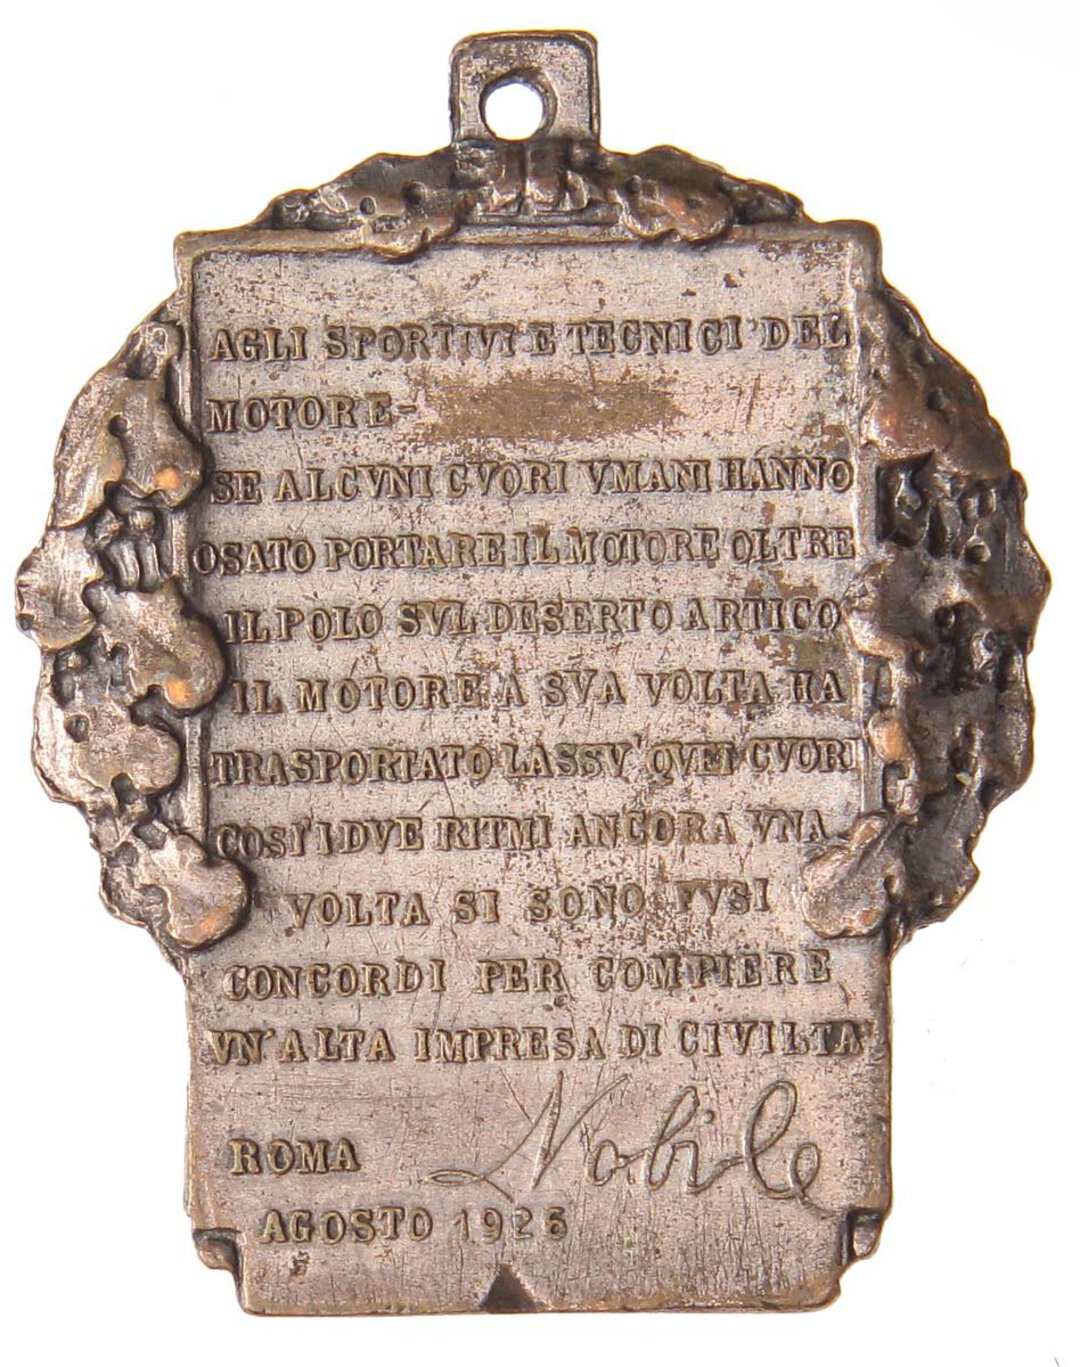 AGLI SPORTIVI E TECNICI DEL
MOTORE-
SE ALCVNI CVORI VMANI HANNO
OSATO PORTARE IL MOTORE OLTRE
IL POLO SVL DESERTO ARTICO
IL MOTORE A SVA VOLTA HA
TRASPORTATO LASSV' QVEI CVORI
COSI' I DVE RITMI ANCORA VNA
VOLTA SI SONO FVSI
CONCORDI PER COMPIERE
VN'ALTA IMPRESA DI CIVILTA'
Nobile
ROMA
AGOSTO 1926